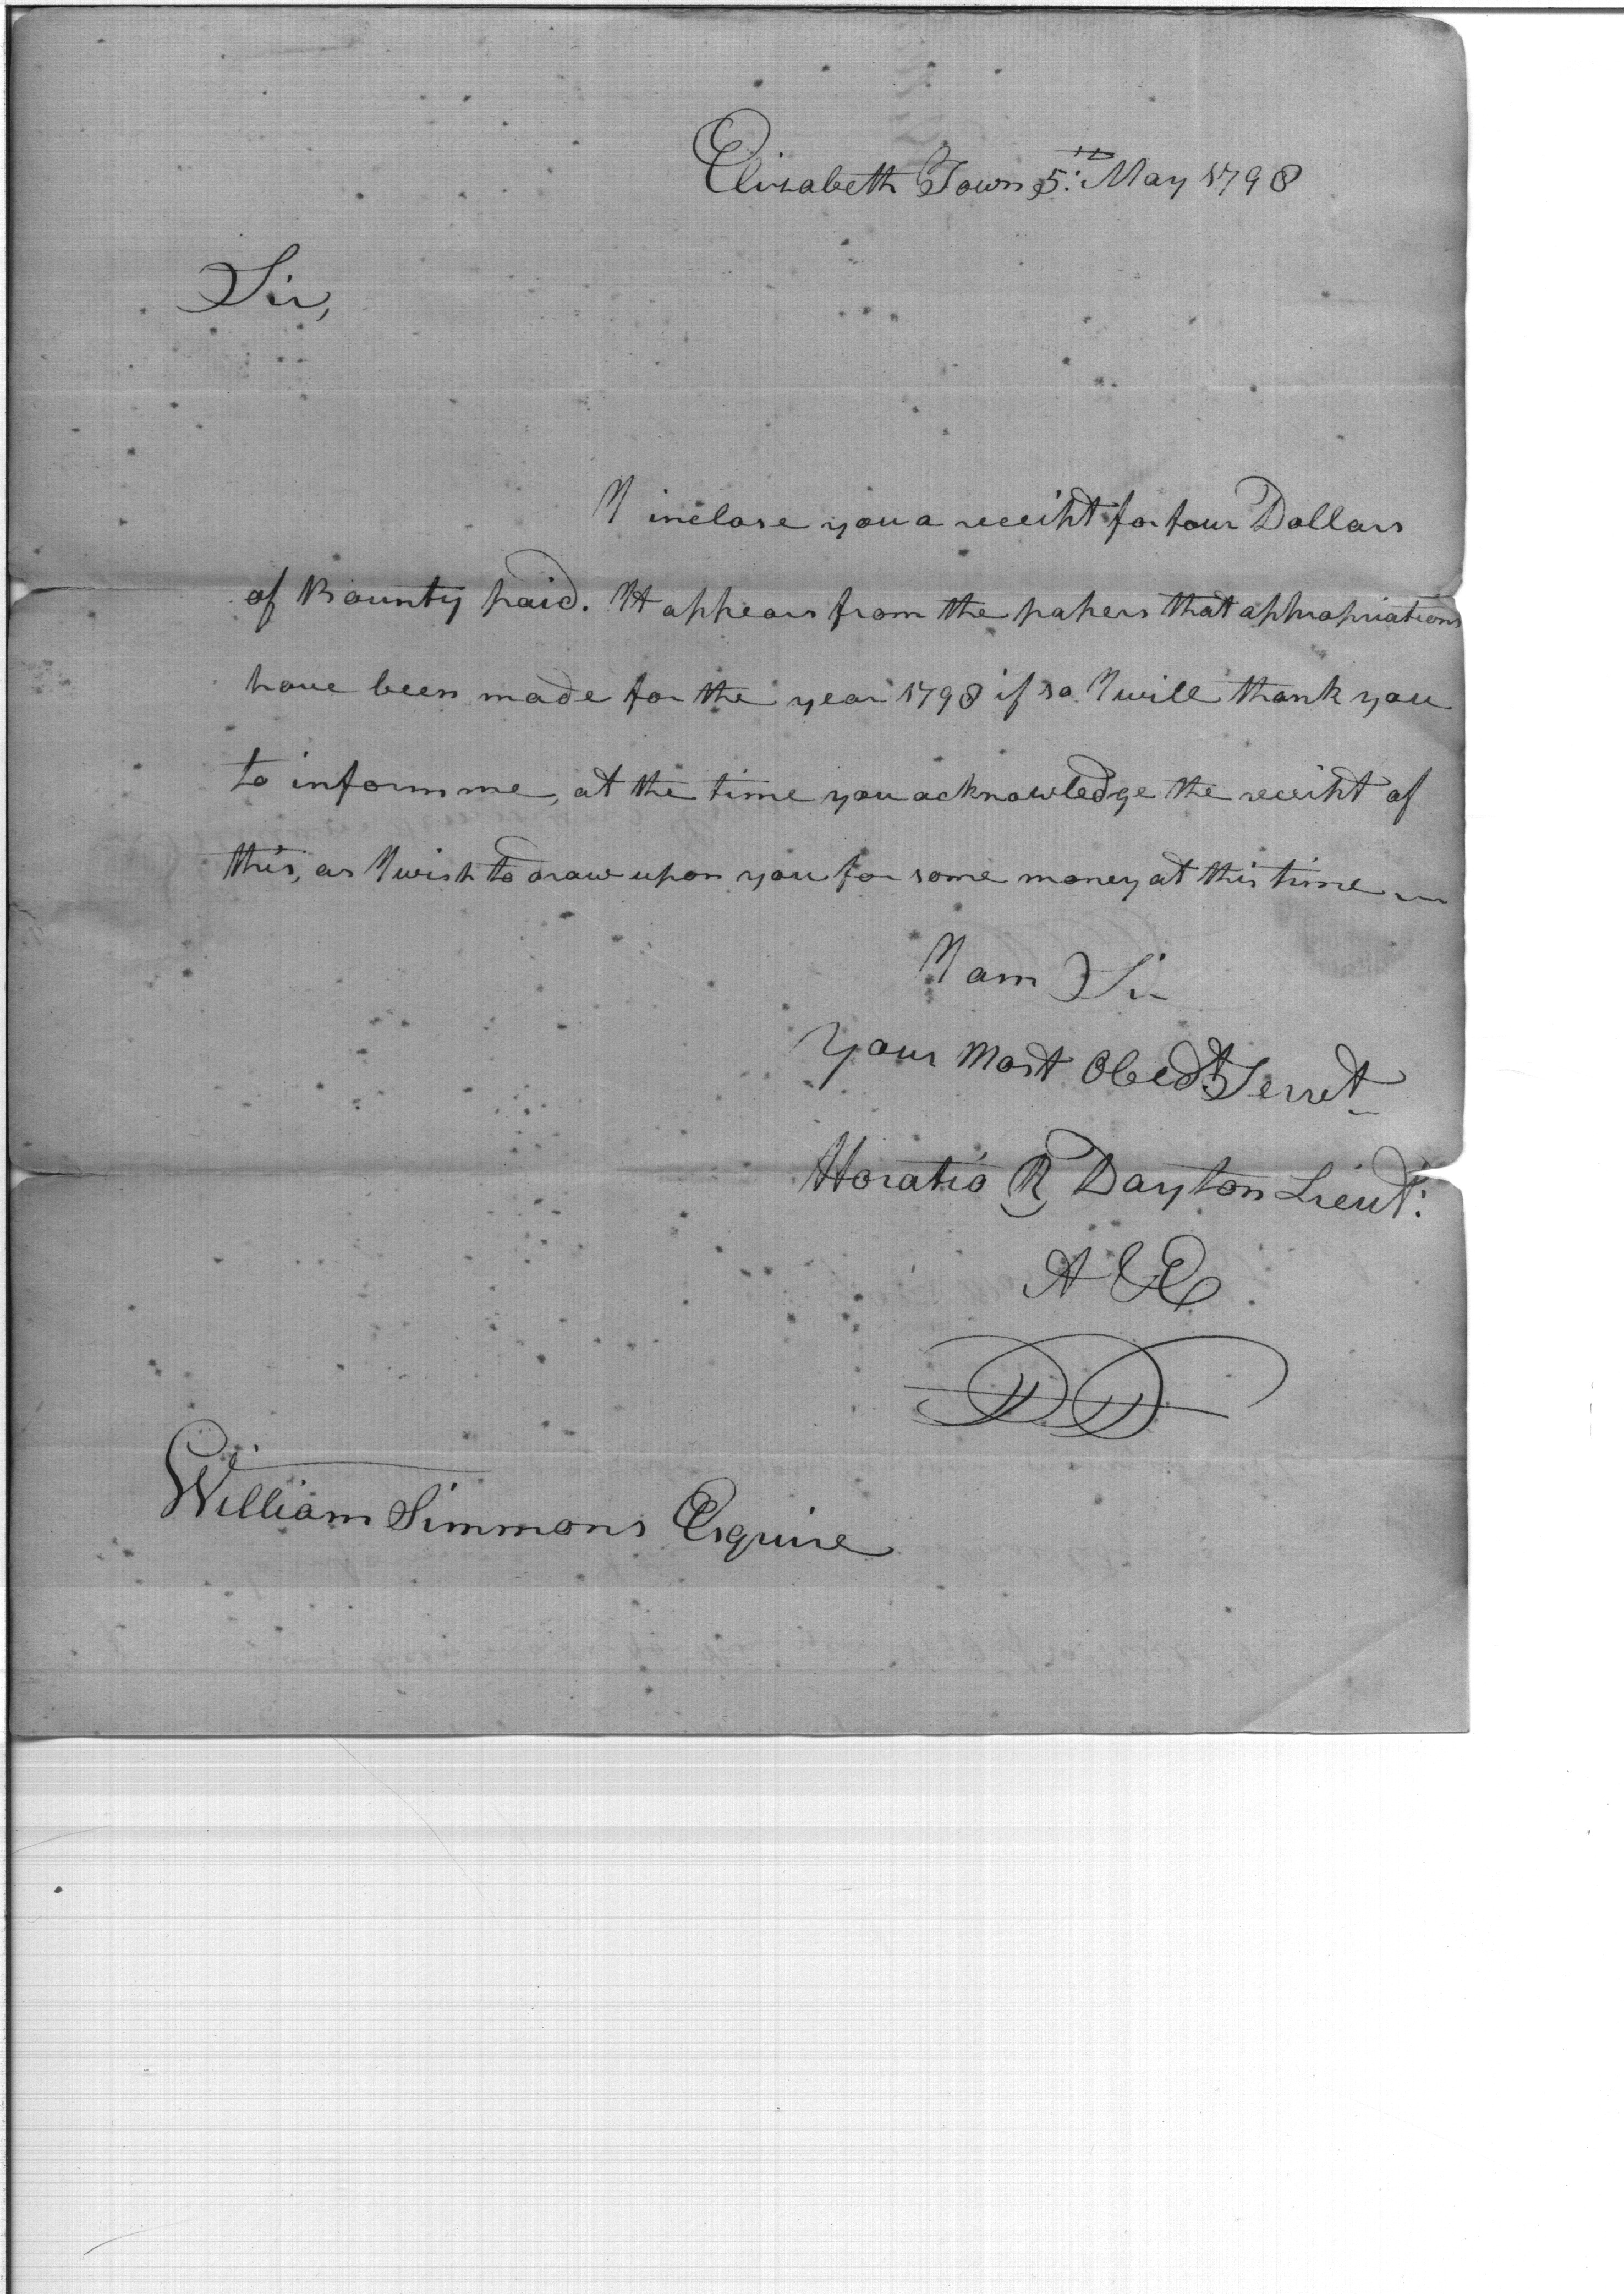 Elizabeth Town 5th May 1798
Sir,
I inclose you a receipt for four Dollars
of Bounty paid. It appears from the papers that appropriations
have been made for the year 1798 if so I will thank you
to inform me, at the time you acknowledge the receipt of
this, as I wish to draw upon you for some money at this time
I am Sir
Your Most Obedt Servt
Horatio R Dayton Lieut:
A & E
William Simmons Esquire